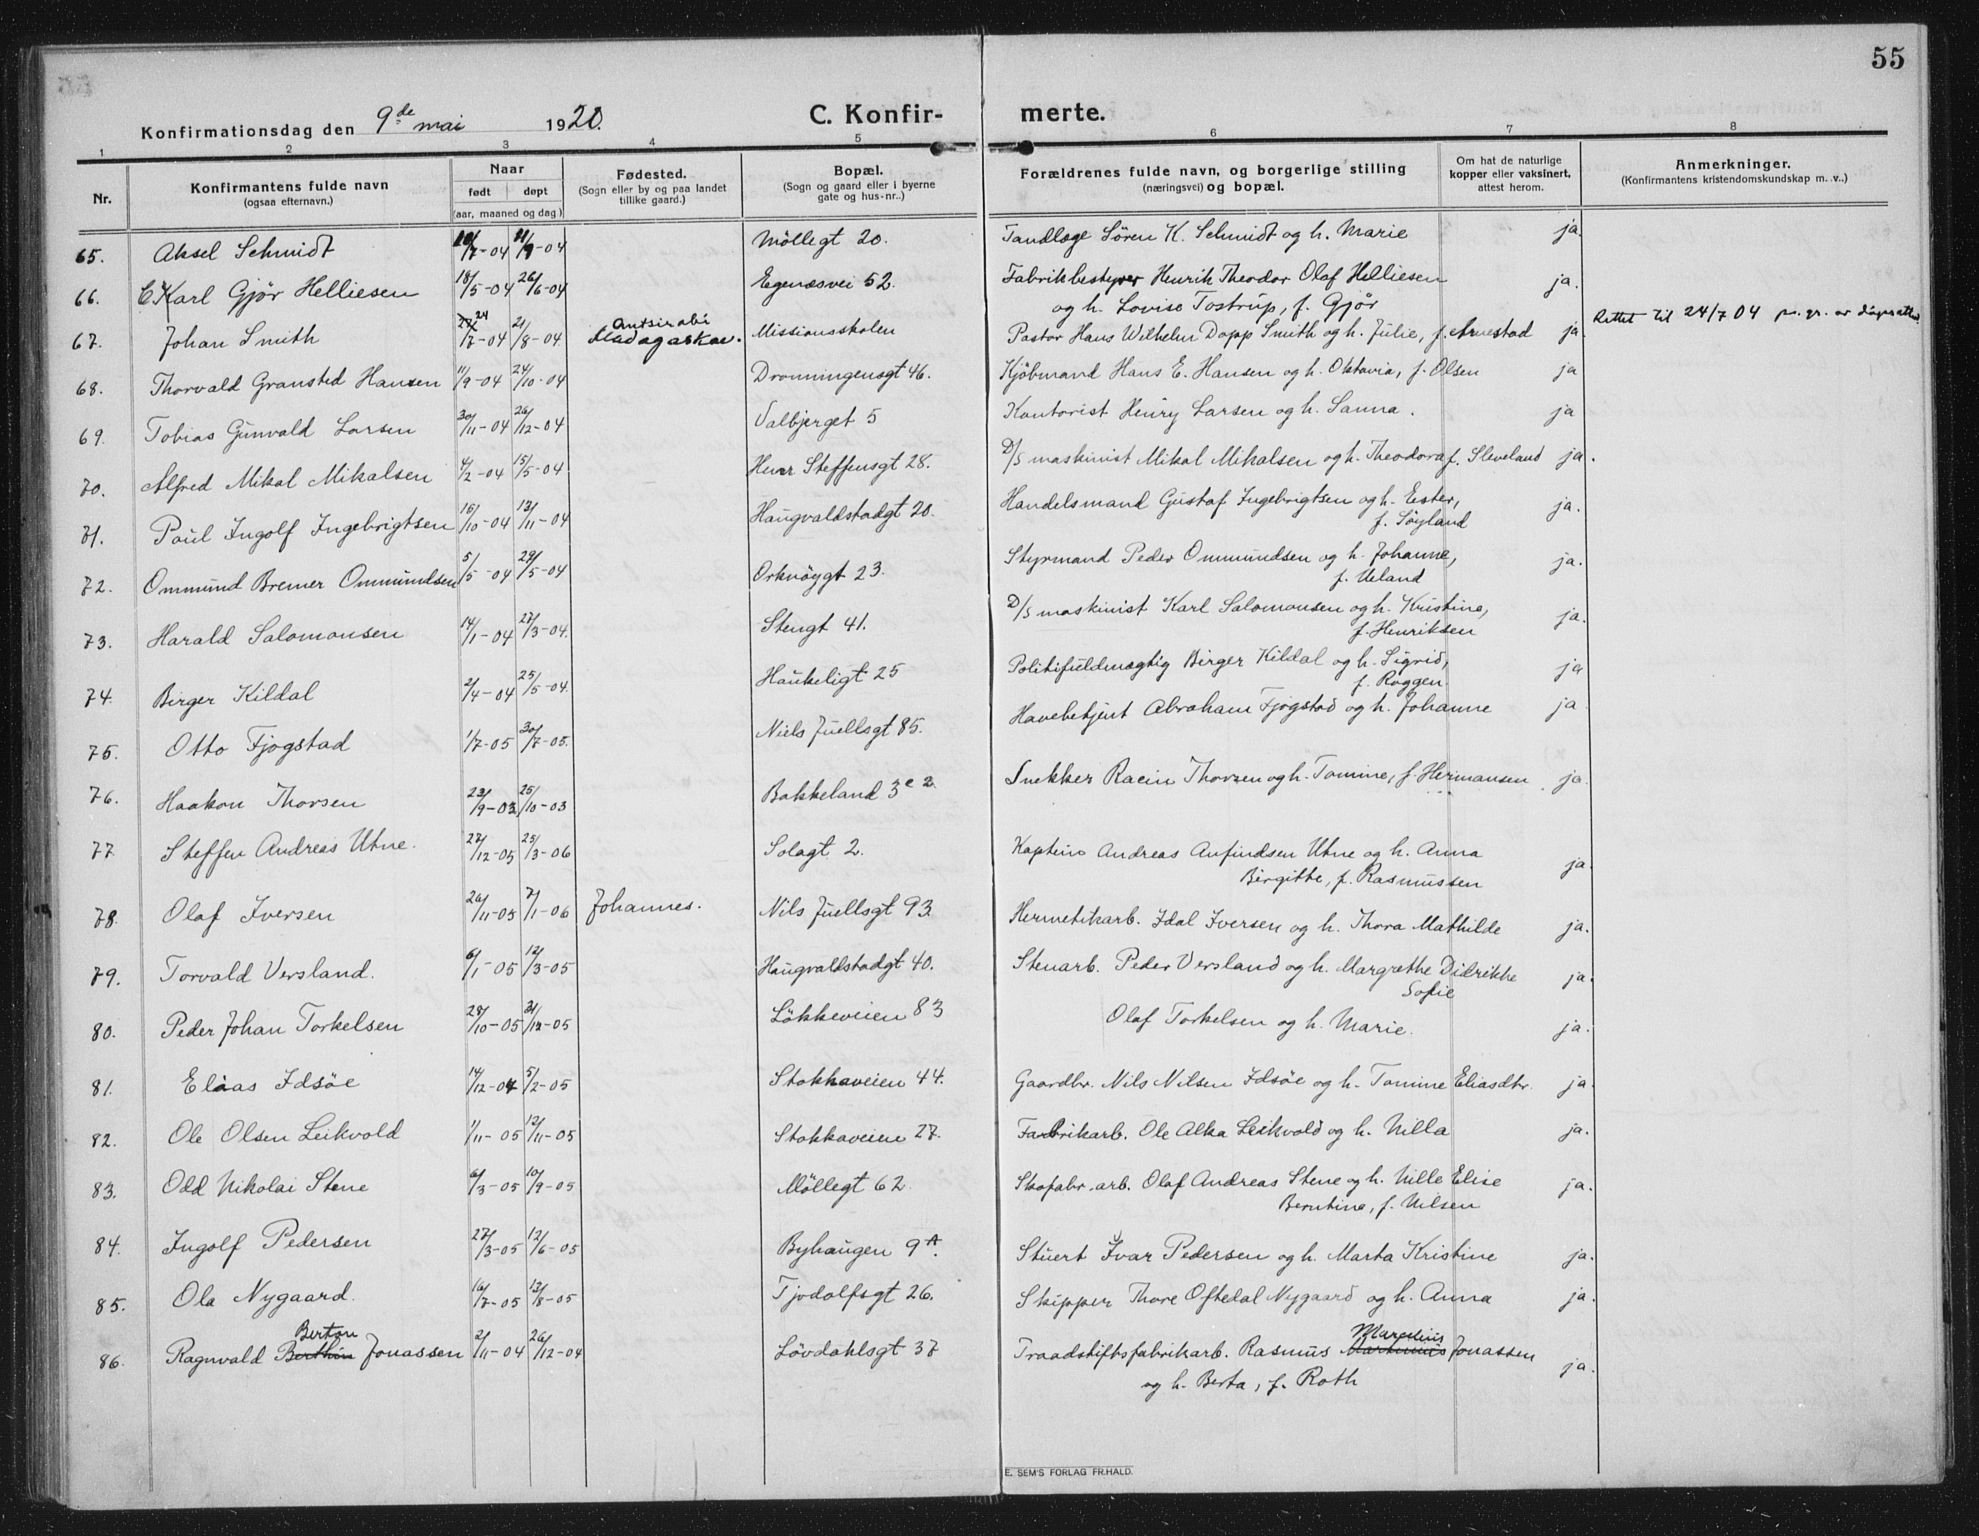 55
Konfirmationsdag den 9de mai 1920.
C. Konfirmerte.
1 2 3 4 5 6 7 8
Nr.
Konfirmantens fulde navn
(ogsaa efternavn.)
Naar
født døpt
(aar, maaned og dag)
Fødested.
(Sogn eller by og paa landet
tillike gaard.)
Bopæl.
(Sogn og gaard eller i byerne
gate og hus-nr..)
Forældrenes fulde navn, og borgerlige stilling
(næringsvei) og bopæl.
Om hat de naturlige
kopper eller vaksinert,
attest herom.
Anmerkninger.
(Konfirmantens kristendomskundskap m. v..)
65. Aksel Schmidt /7-04 11/9-04 Möllegt 20. Tandlæge Sören K. Schmidt og h. Marie ja.
66. C. Karl Gjör Helliesen 18/5-04 26/6-04 Egenæsvei 52. Fabrikbestyrer Henrik Theodor Olaf Helliesen ja.
og h. Lovise Tostrup, f. Gjör
67. Johan Smith 24/7-04 21/8-04 Antsirabi Madagaskar. Missionsskolen Pastor Hans Wilhelm Dopp Smith og h. Julie, f. Arnestad ja Rettet til 24/7 04 p. gr. av dåpsattest
68. Thorvald Gransted Hansen 11/9-04 24/10-04 Dronningensgt 46. Kjöbmand Hans E. Hansen og h. Oktavia, f. Olsen ja
69. Tobias Gunvald Larsen 30/11-04 26/12-04 Valbjerget 5 Kontorist Henry Larsen og h. Sanna. ja
70. Alfred Mikal Mikalsen 4/2-04 15/5-04 Henr Steffensgt 28. D/S maskinist Mikal Mikalsen og h. Theodora f. Sleveland ja.
71. Paul Ingolf Ingebrigtsen 16/10-04 13/11-04 Haugvaldstadgt 20. Handelsmand Gustaf Ingebrigtsen og h. Ester, ja.
f. Söyland
72. Ommund Bremer Ommundsen 5/5-04 29/5-04 Orknöygt 23. Styrmand Peder Ommundsen og h. Johanne, ja.
f. Ueland
73. Harald Salomonsen 14/1-04 27/3-04. Stengt 41. D/S maskinist Karl Salomonsen og h. Kristine, ja.
f. Henriksen
74. Birger Kildal 2/4-04 25/5-04. Haukeligt 25 Politifuldmægtig Birger Kildal og h. Sigrid, ja
f. Roggen.
75. Otto Fjogstad 1/7-05 30/7-05. Niels Juellsgt 85. Havebetjent Abraham Fjogstad og h. Johanne ja
76. Haakon Thorsen 23/9-03 25/10-03 Bakkeland 3e 2. Snekker Racin Thorsen og h. Tomine, f. Hermansen ja.
77 Steffen Andreas Utne. 27/12-05 25/3-06 Solagt 2. Kaptein Andreas Anfindsen Utne og h. Anna ja.
Birgitte, f. Rasmussen
78. Olaf Iversen 26/11-05 7/1-06 Johannes. Nils Juellsgt 93. Hermetikarb. Idal Iversen og h. Thora Mathilde ja.
79. Torvald Versland. 6/1-05 12/3-05 Haugvaldstadgt 40. Stenarb. Peder Versland og h. Margrethe Didrikke ja.
Sofie
80. Peder Johan Torkelsen 28/10-05 31/12-05 Lökkeveien 83 Olaf Torkelsen og h. Marie. ja.
81. Elias Idsöe 14/12-04 5/2-05 Stokkaveien 44. Gaardbr. Nils Nilsen Idsöe og h. Tomine Eliasdtr. ja.
82. Ole Olsen Leikvold 1/11-05 12/11-05 Stokkaveien 27. Fabrikarb. Ole Alka Leikvold og h. Nilla ja.
83. Odd Nikolai Stene 6/3-05 10/9-05 Möllegt 62. Skofabr.arb. Olaf Andreas Stene og h. Nille Elise ja.
Berntine, f. Nilsen
84. Ingolf Pedersen 27/3-05 12/6-05 Byhaugen 9A. Stuert Ivar Pedersen og h. Marta Kristine ja.
85. Ola Nygaard. 16/7-05 13/8-05 Tjodolfsgt 26. Skipper Thore Oftedal Nygaard og h. Anna ja.
86. Ragnvald Berthin Berton Jonassen 2/11-04 26/12-04 Lövdahlsgt 37 Traadstiftsfabrikarb. Rasmus Martinius Marselius Jonassen ja.
og h. Berta, f. Roth
E. SEM'S FORLAG FR.HALD.